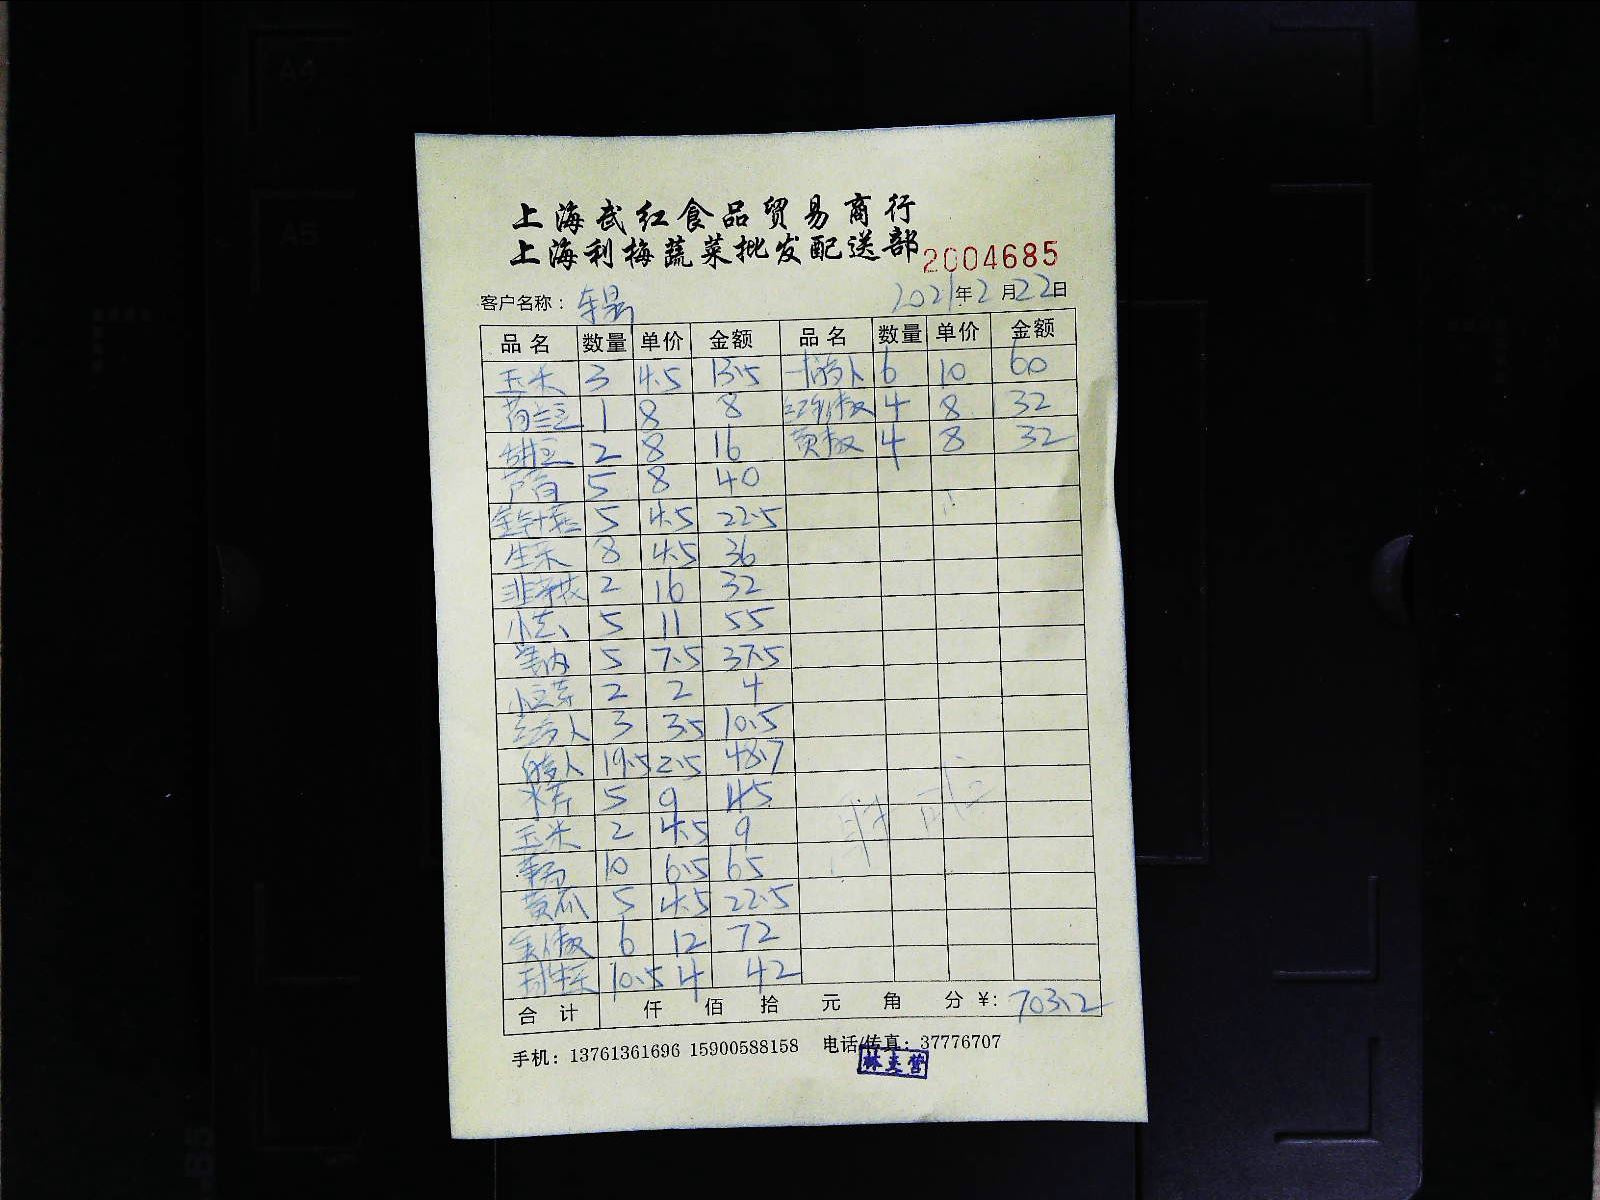 上海武红食品贸易商行
上海利梅蔬菜批发配送部
2004685
客户名称： 2021年2月22日
品名 数量 单价 金额 品名 数量 单价 金额
玉米 3 4.5 13.5 6 10 60
荷兰豆 1 8 8 4 8 32
2 8 16 黄椒 4 8 32
芦笋 5 8 40
金针菇 5 4.5 22.5
生菜 8 4.5 36
2 16 32
5 11 55
5 7.5 37.5
小豆芽 2 2 4
3 3.5 10.5
19.5 2.5 48.7
5 9 45
玉米 2 4.5 9
10 6.5 65
黄瓜 5 4.5 22.5
6 12 72
10.5 4 42
合计 仟 佰 拾 元 角 分 ¥: 703.2
手机：13761361696 15900588158 电话/传真：37776707